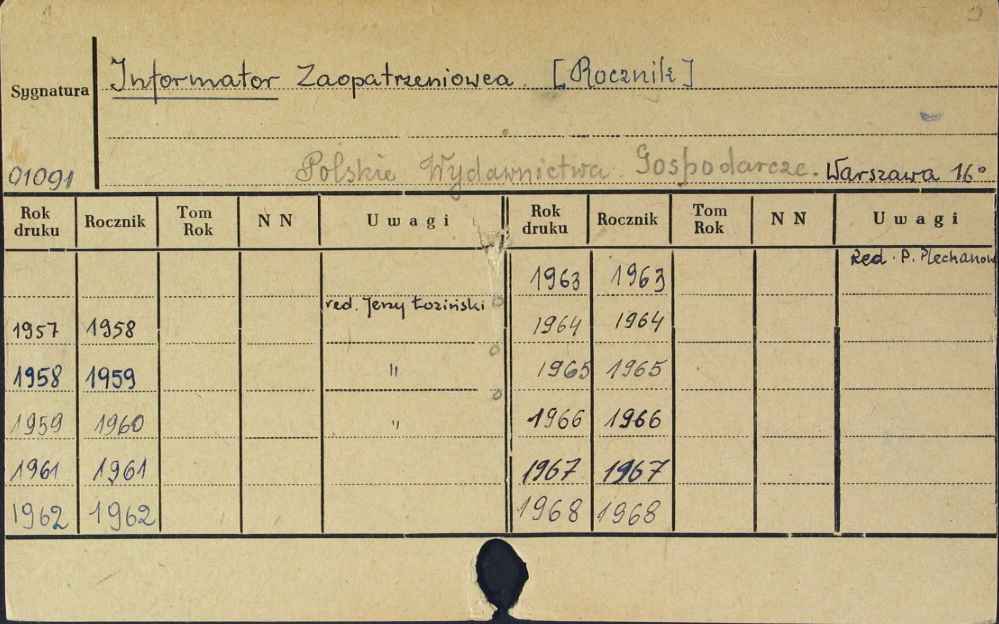 Informator Zaopatrzeniowca. [Rocznik]
Sygnatura
01091
Polskie Wydawnictwa Gospodarcze. Warszawa 16°
Rok druku Rocznik Tom Rok N N Uwagi Rok druku Rocznik Tom Rok N N Uwagi
1963 1963 Red. P. Plechanow
1957 1958 red. Jerzy Łoziński 1964 1964
1958 1959 " 1965 1965
1959 1960 " 1966 1966
1961 1961 1967 1967
1962 1962 1968 1968